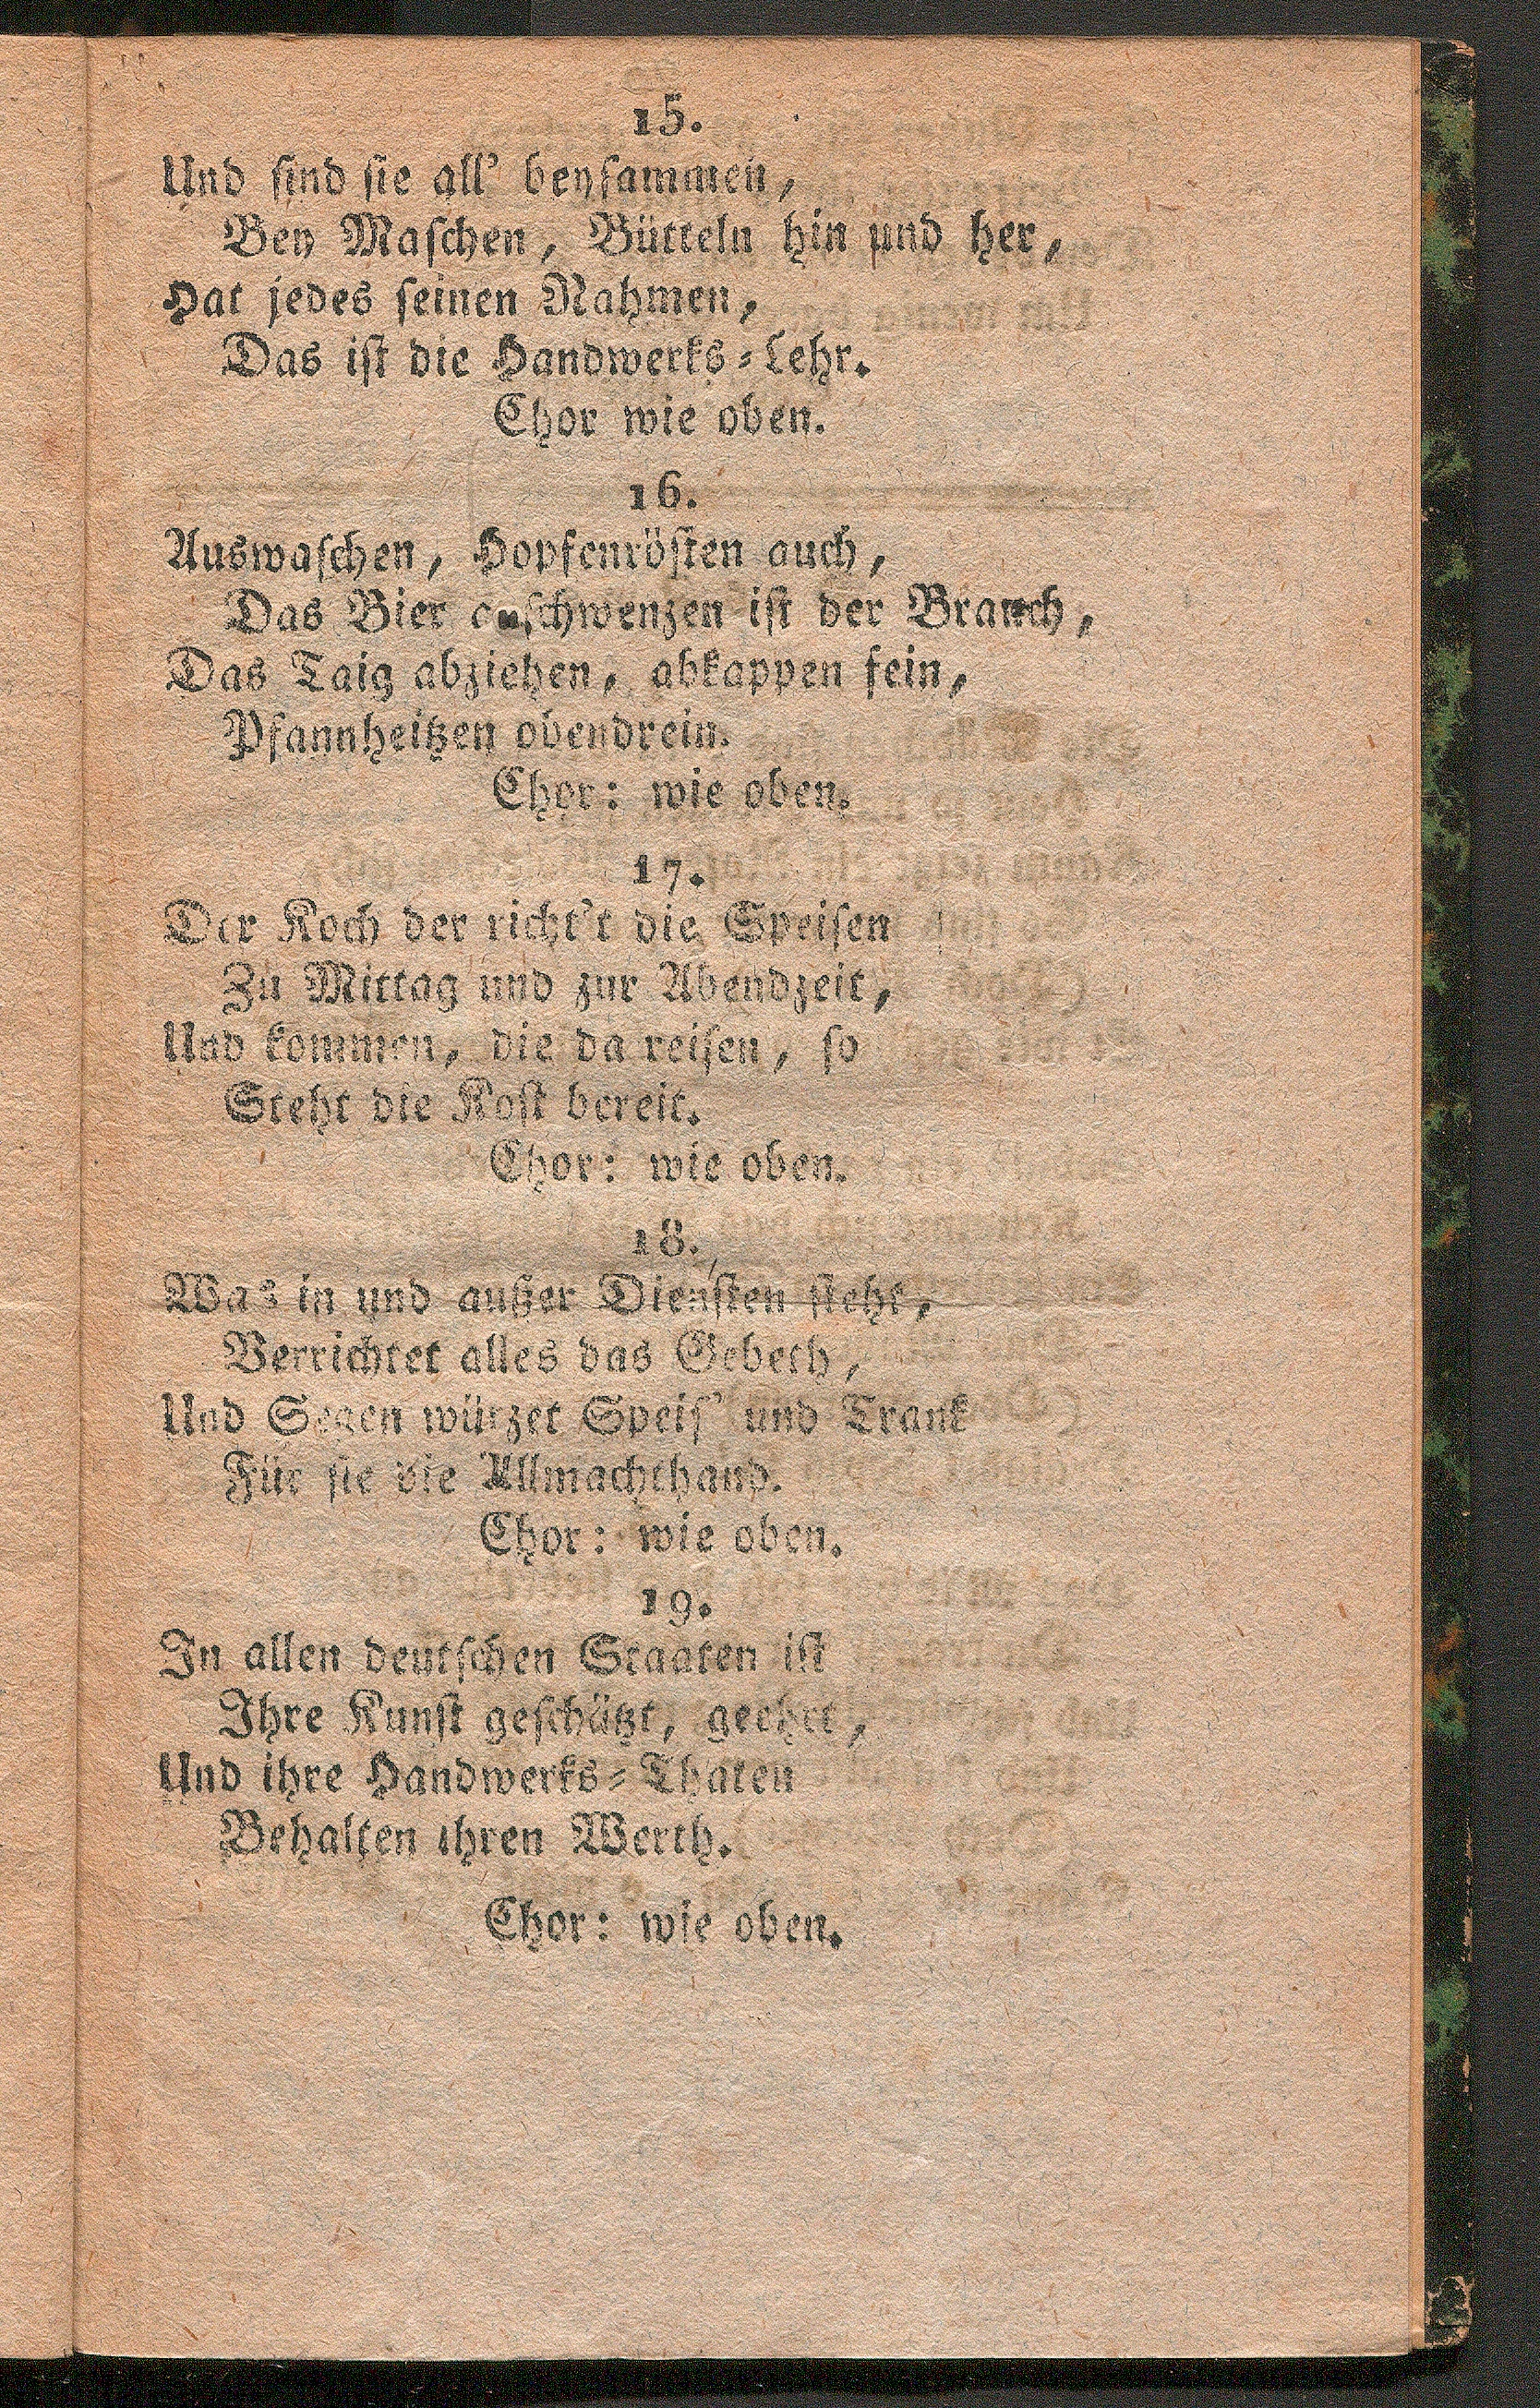 15.
Und ſind ſie all' beyſammen,
Bey Maſchen, Bütteln hin und her,
Hat jedes ſeinen Nahmen,
Das iſt die Handwerks-Lehr.
Chor wie oben.
16.
Auswaſchen, Hopfenröſten auch,
Das Bier ist der Brauch,
Das Taig abziehen, abkappen fein,
Pfannheitzen obendrein.
Chor: wie oben.
17.
Der Koch der richt't die Speiſen
Zu Mittag und zur Abendzeit,
Und kommen, die da reiſen, ſo
Steht die Koſt bereit.
Chor: wie oben.
18.
Was in und außer Dienſten ſteht,
Verrichtet alles das Gebeth,
Und Segen würzet Speiſ' und Trank
Für ſie die Allmachthand.
Chor: wie oben.
19.
In allen deutſchen Staaten iſt
Ihre Kunſt geſchätzt, geehrt,
Und ihre Handwerks-Thaten
Behalten ihren Werth.
Chor: wie oben.